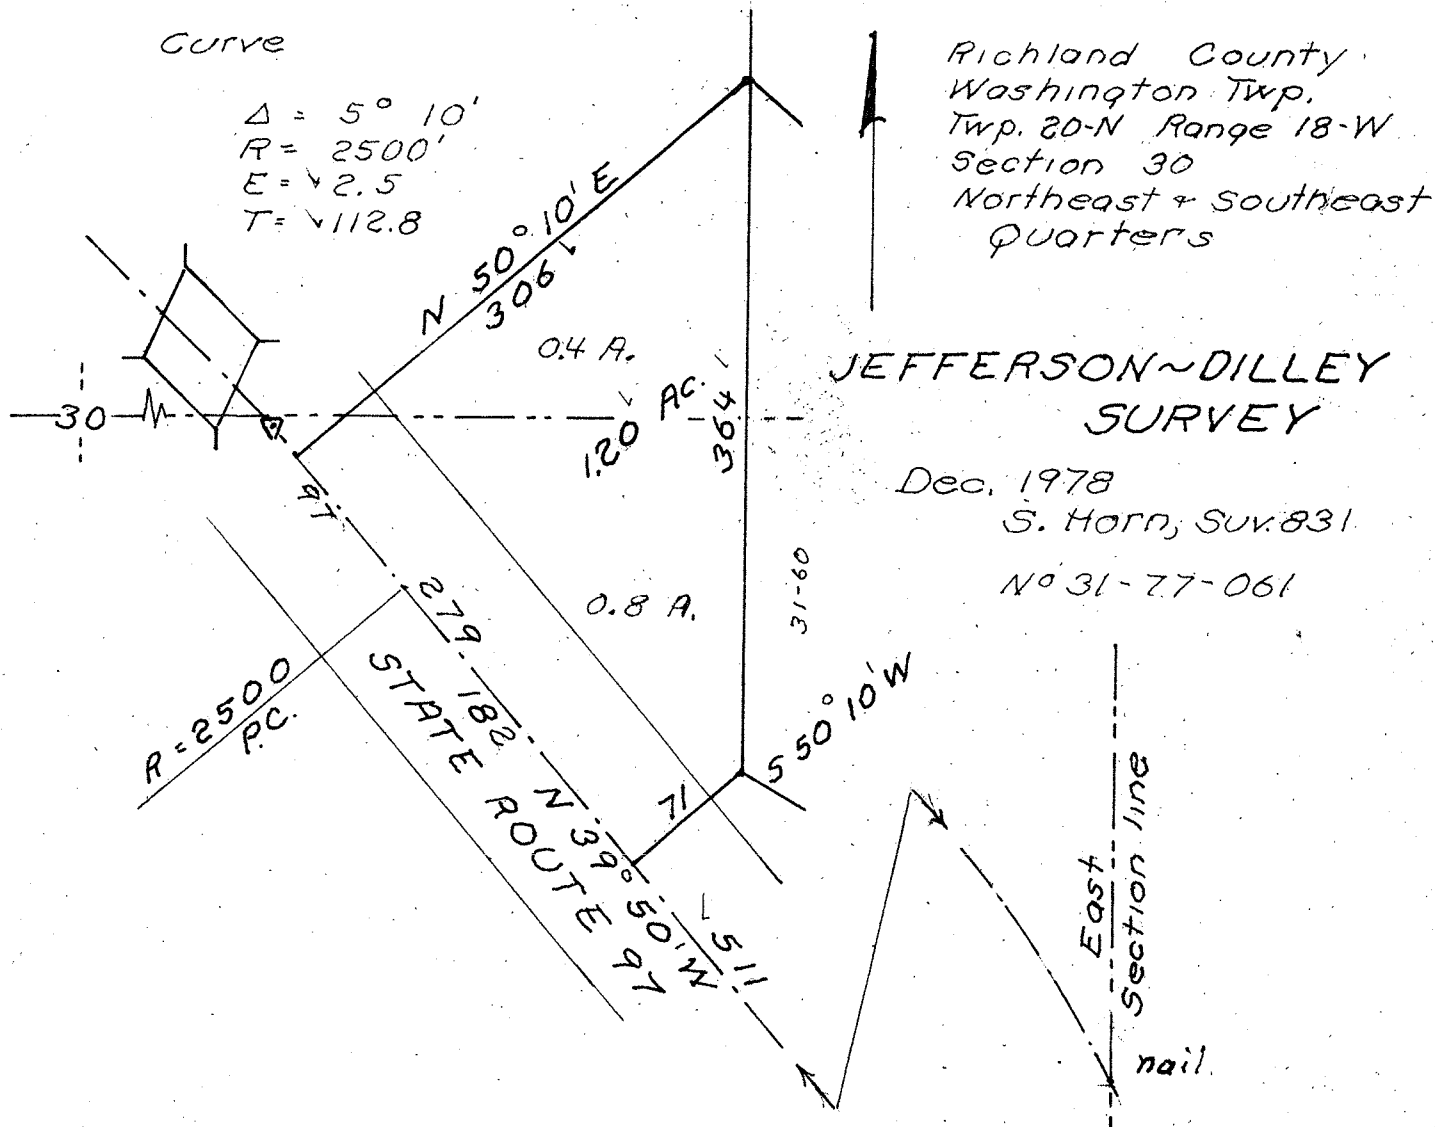 Curve
Δ = 5° 10'
R = 2500'
E = 2.5
T = 112.8
Richland County
Washington Twp.
Twp. 20-N Range 18-W
Section 30
Northeast & Southeast
Quarters
JEFFERSON~DILLEY
SURVEY
Dec. 1978
S. Horn, Suv. 831
Nº 31-77-061
N 50° 10' E
306
0.4 A.
30
1.20 AC.
364
97
31-60
0.8 A.
279
182
N 39° 50' W
511
STATE ROUTE 97
R = 2500
P.C.
71
S 50° 10' W
East
Section line
nail